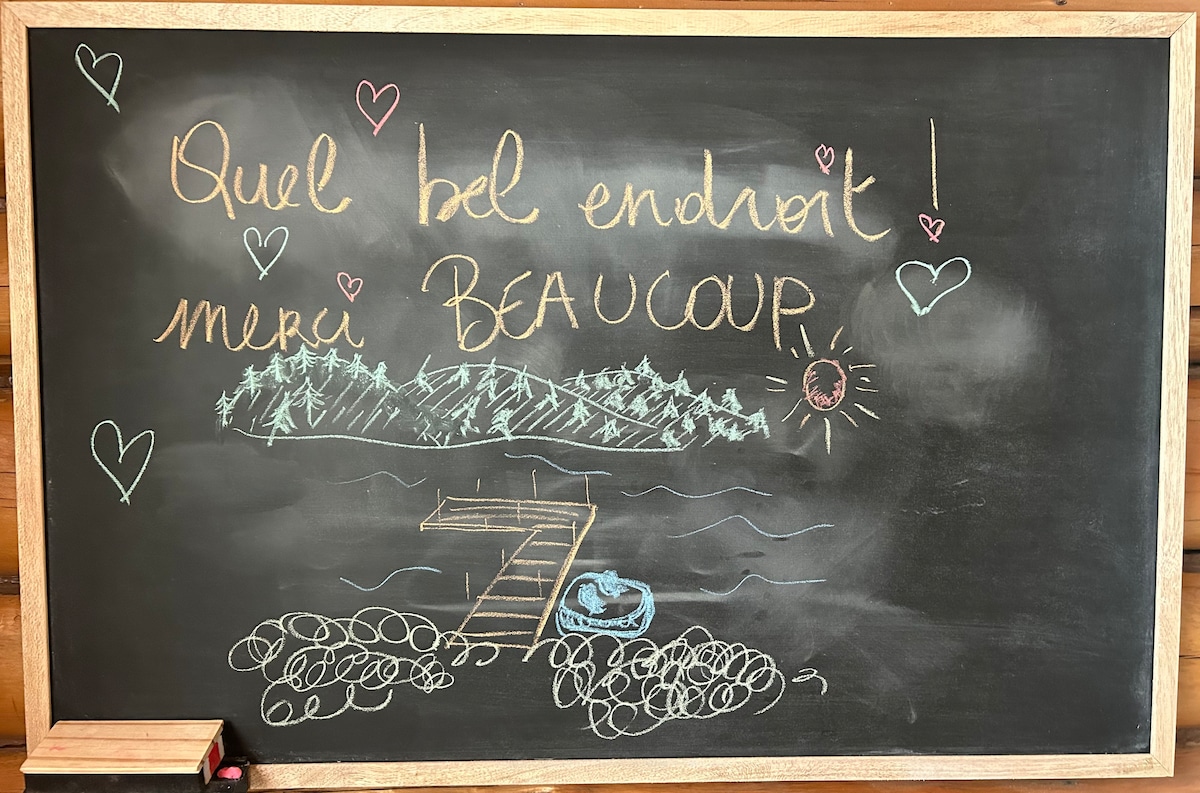 Quel bel endroit !
merci BEAUCOUP